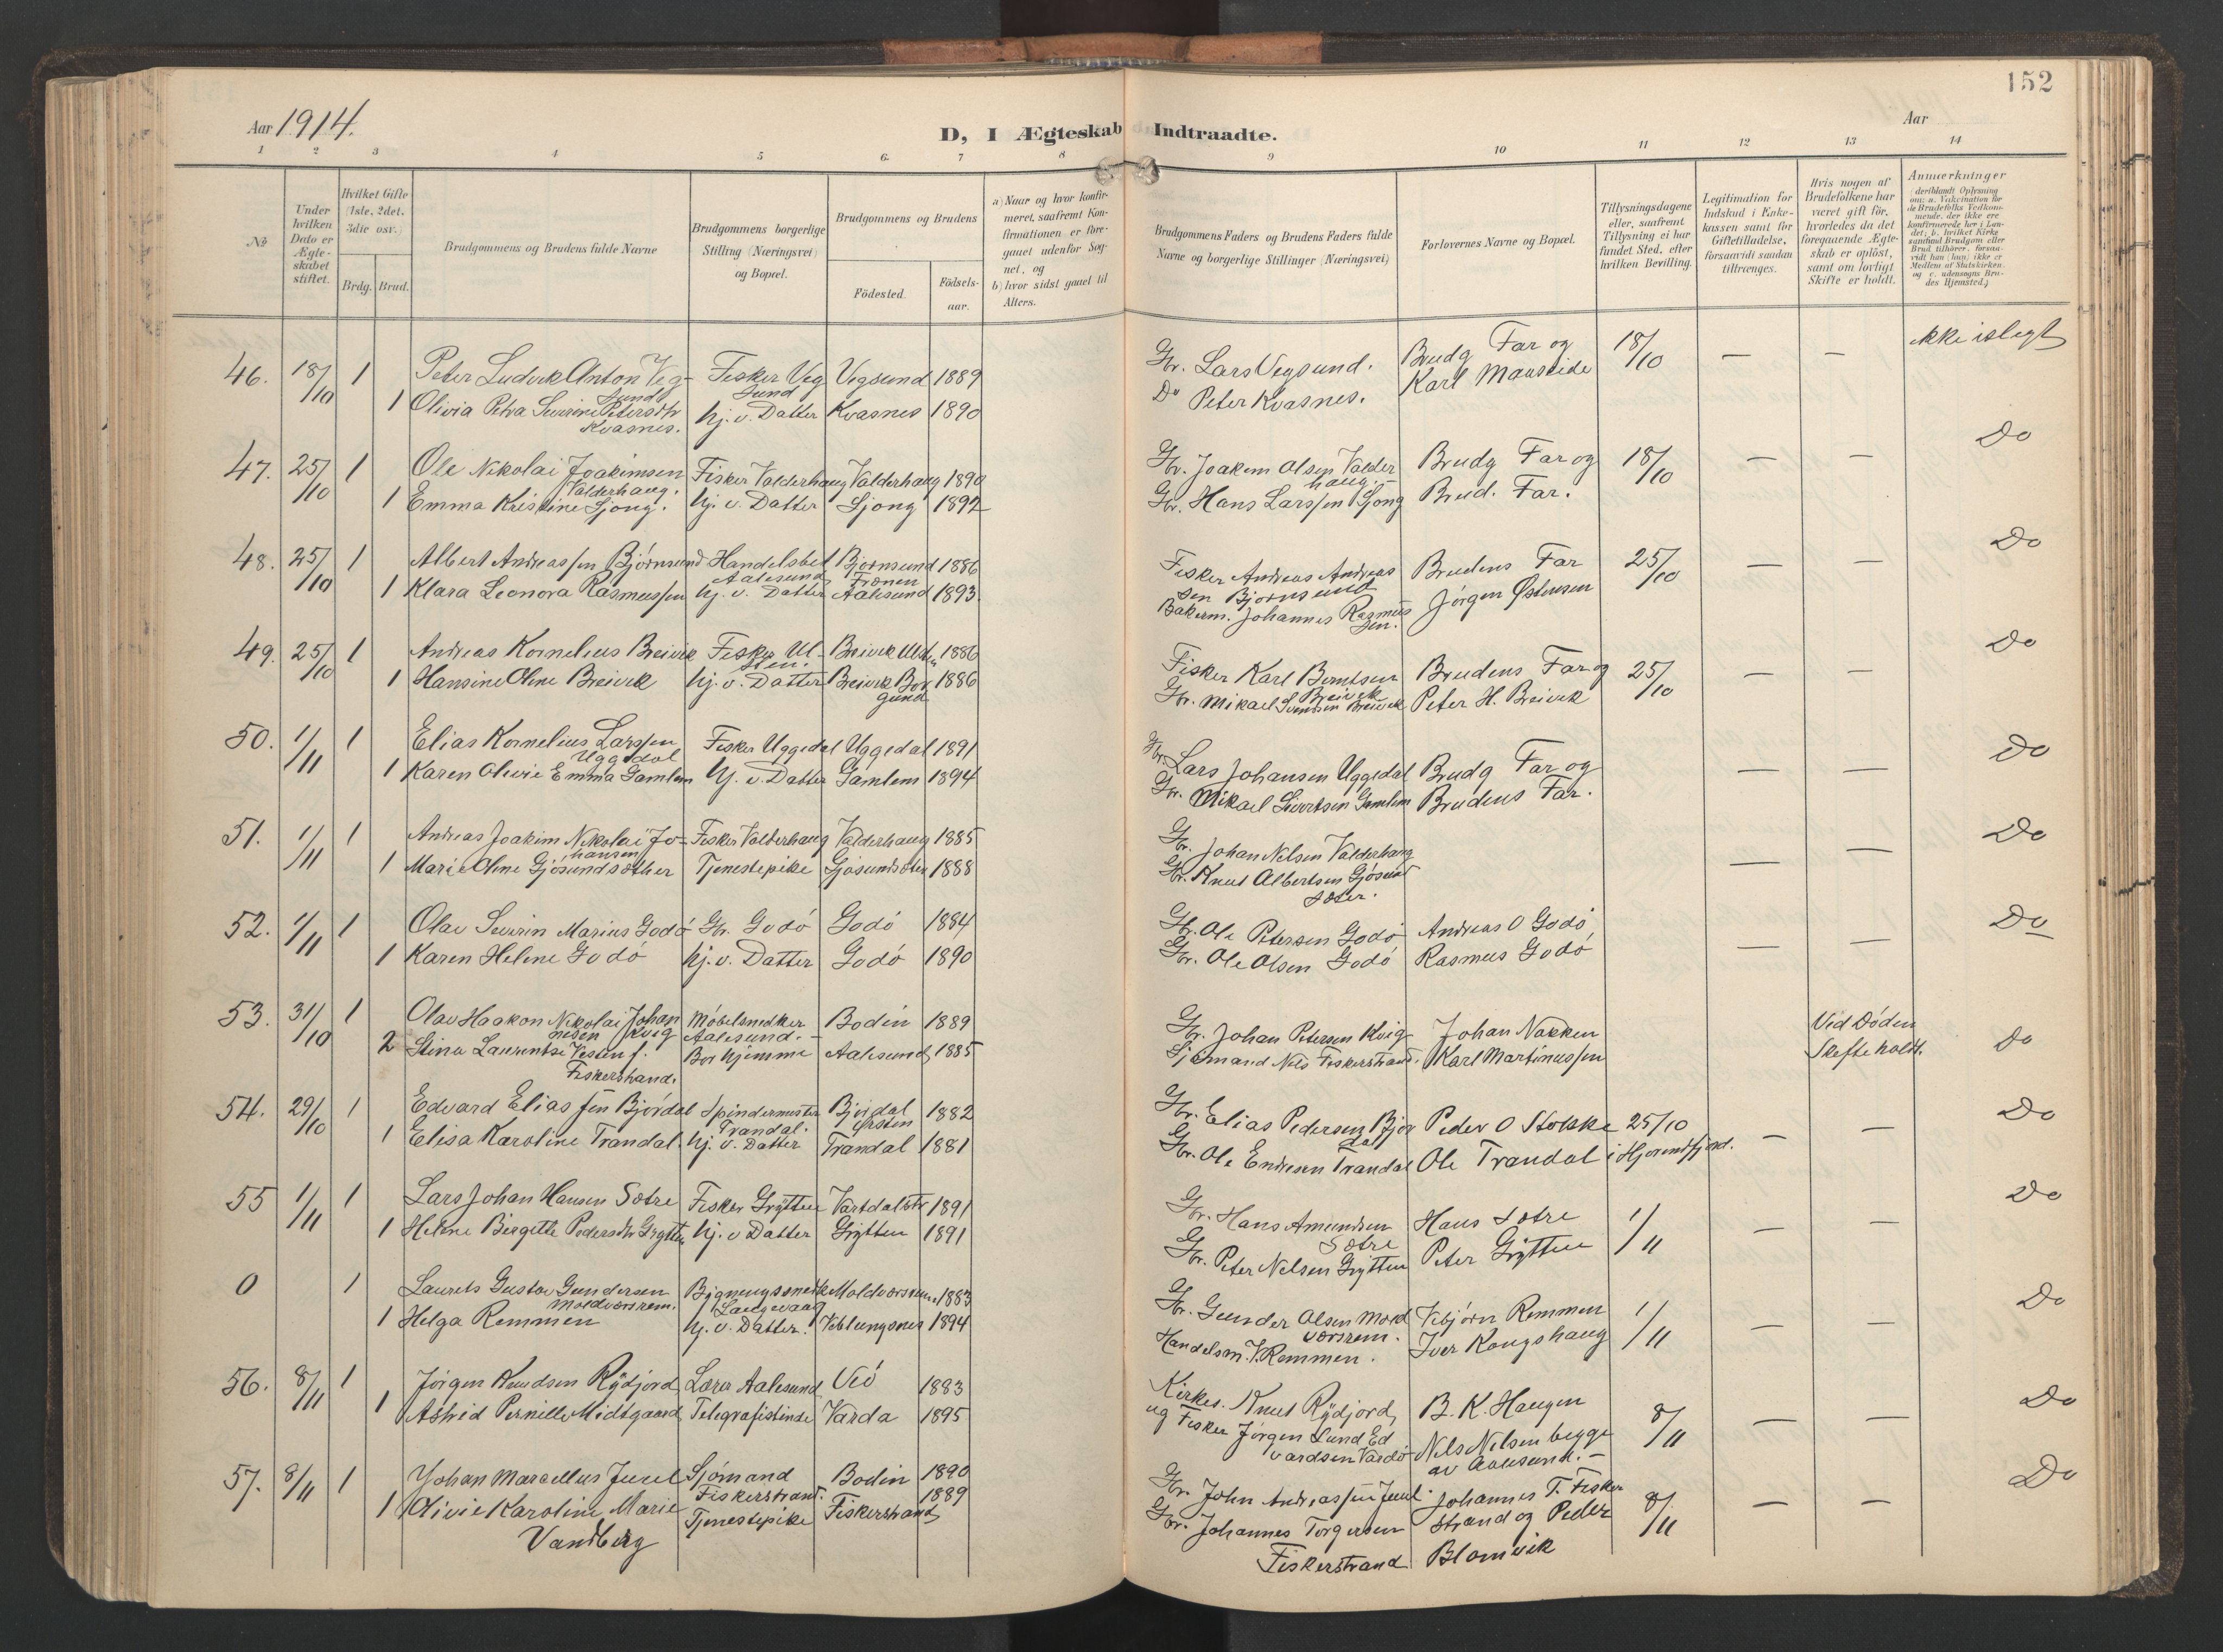 152
Aar 1914.
D, I Ægteskab Indtraadte.
Aar
1 2 3 4 5 6. 7 8 9 10 11 12 13 14
No
Under hvilken Dato er Ægteskabet stiftet.
Hvilket Gifte (1ste, 2det, 3die osv.)
Brdg. Brud.
Brudgommens og Brudens fulde Navne
Brudgommens borgerlige Stilling (Næringsvei) og Bopæl.
Brudgommens og Brudens
Fødested.
Fødselsaar.
a) Naar og hvor konfirmeret, saafremt Konfirmationen er foregaaet udenfor Sognet, og
b) hvor sidst gaaet til Alters.
Brudgommens Faders og Brudens Faders fulde Navne og borgerlige Stillinger (Næringsvei)
Forlovernes Navne og Bopæl.
Tillysningsdagene eller, saafremt Tillysning ei har fundet Sted, efter hvilken Bevilling.
Legitimation for Indskud i Enkekassen samt for Giftetilladelse, forsaavidt saadan tiltrænges.
Hvis nogen af Brudefolkene har været gift før, hvorledes da det foregaaende Ægteskab er opløst, samt om lovligt Skifte er holdt.
Anmerkninger
46. 18/10 1 Peter Ludvik Anton Vegsund Fisker Vegsund Vegsund 1889
1 Olivia Petra Severine Petersdtr Kvasnes. hj. v. Datter Kvasnes 1890
Gbr. Lars Vegsund. Brudg Far og 18/10 — — ikke islegt
Do Peter Kvasnes. Karl Mauseide
47. 25/10 1 Ole Nikolai Joakimsen Valderhaug. Fisker Valderhaug Valderhaug 1890
1 Emma Kristine Gjong. hj. v. Datter Gjong 1892
Gbr. Joakim Olsen Valderhaug. Brudg Far og 18/10 — — Do
Gbr. Hans Larssen Gjong Brud. Far.
48. 25/10 1 Albert Andreassen Bjørnsund Handelsbet Aalesund Bjornsund Frænen 1886
1 Klara Leonora Rasmussen hj. v. Datter Aalesund 1893
Fisker Andreas Andreassen Bjornsund Brudens Far 25/10 — — Do
Bakerm. Johannes Rasmussen. Jørgen Østensen
49. 25/10 1 Andreas Kornelius Breivik Fisker Ulsten. Breivik Ulsten 1886
1 Hansine Oline Breivik hj. v. Datter Breivik Borgund 1886
Fisker Karl Berntsen Breivik Brudens Far og 25/10 — — Do
Gbr. Mikael Svendsen Breivik Peter H. Breivik
50. 1/11 1 Elias Kornelius Larssen Uggedal Fisker Uggedal Uggedal 1891
1 Karen Olivie Emma Gamlem hj. v. Datter Gamlem 1894
Gbr. Lars Johansen Uggedal Brudg Far og — — Do
Gbr. Mikael Sivertsen Gamlem Brudens Far.
51. 1/11 1 Andreas Joakim Nikolai Johansen Fisker Valderhaug Valderhaug 1885
1 Marie Oline Gjøsundsæther Tjenestepike Gjøsundsæter 1888
Gbr. Johan Nilsen Valderhaug — — Do
Gbr. Knut Albertsen Gjøsundsæter.
52. 1/11 1 Olav Severin Marius Godø Gbr. Godø Godø 1884
1 Karen Helene Godø hj. v. Datter Godø 1890
Gbr. Ole Petersen Godø Andreas O Godø, — — Do
Gbr. Ole Olsen Godø Rasmus Godø
53. 31/10 1 Olav Haakon Nikolai Johannesen Kvig Møbelsnedker Aalesund. Bodin 1889
2 Stina Laurentse Vesten f. Fiskerstrand. Bor hjemme Aalesund 1885
Gbr. Johan Petersen Kvig Johan Nakken Ved Døden Do
Sjømand Nils Fiskerstrand. Karl Martinussen Skifte holdt.
54. 29/10 1 Edvard Eliassen Bjørdal Spindermester Trandal. Bjørdal Ørsten 1882
1 Elisa Karoline Trandal. hj. v. Datter Trandal 1881
Gbr. Elias Pedersen Bjørdal Peder O Stokke 25/10 — — Do
Gbr. Ole Endresen Trandal Ole Trandal i Hjorendfjord.
55 1/11 1 Lars Johan Hansen Sætre Fisker Grytten Vartdalstr 1891
1 Helene Birgitte Pedersdtr Grytten hj. v Datter Grytten 1891
Gbr. Hans Amundsen Sætre Hans Sætre 1/11 — — Do
Gbr. Peter Nelsen Grytten Peter Grytten
0 1 Laurits Gustav Gundersen Moldværsrem. Bygningssnedk Langevaag Moldværsrem 1883
1 Helga Remmen hj. v. Datter. Veblungsnes 1894
Gbr. Gunder Olsen Moldværsrem. Vebjørn Remmen 1/11 — — Do
Handelsm. V. Remmen. Iver Kongshaug
56. 8/11 1 Jørgen Knudsen Rydjord Lærer Aalesund Veø 1883
1 Astrid Pernille Midtgaard Telegrafistinde Vardø 1895
Kirkes. Knut Rydjord, B. K. Haugen 8/11 — — Do
og Fisker Jørgen Lund Edvardsen Vardø Nils Nilsen begge av Aalesund.
57. 8/11 1 Johan Marcellus Juul Sjømand Fiskerstrand. Bodin 1890
1 Olivie Karoline Marie Vandberg Tjenestepike Fiskerstrand 1889
Gbr. John Andreassen Juul Johannes T. Fiskerstrand og Peder Blomvik 8/11 — — Do
Gbr. Johannes Torgersen Fiskerstrand